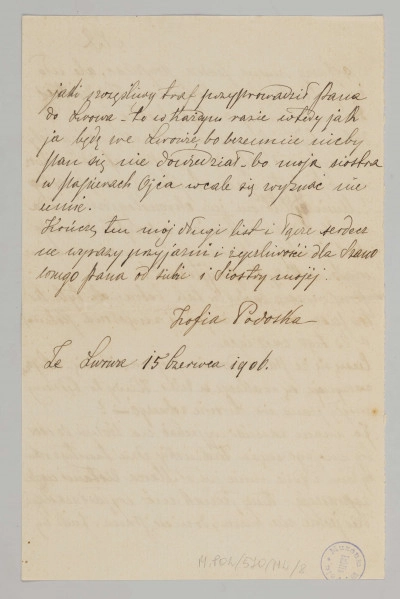 jaki szczęśliwy traf przyprowadził Pana
do Lwowa – to w każdym razie wtedy jak
ja będę we Lwowie, bo bezemnie nicby
Pan się nie dowiedział – bo moja siostra
w papierach Ojca wcale się wyznać nie
umie.
Kończę ten mój długi list i łączę serdecz
ne wyrazy przyjaźni i życzliwości dla Szano
wnego Pana od siebie i Siostry mojej.
Zofia Podoska
Ze Lwowa 15 Czerwca 1906.